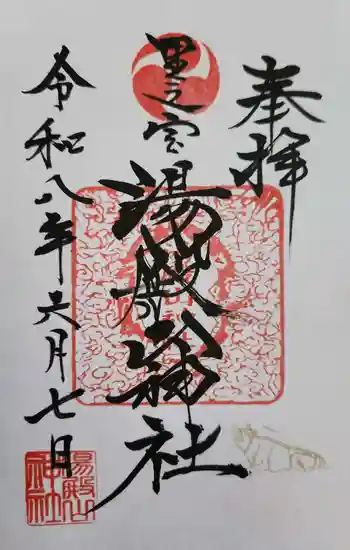 奉拝
里之宮
湯殿山神社
令和八年六月七日
湯殿山
神社